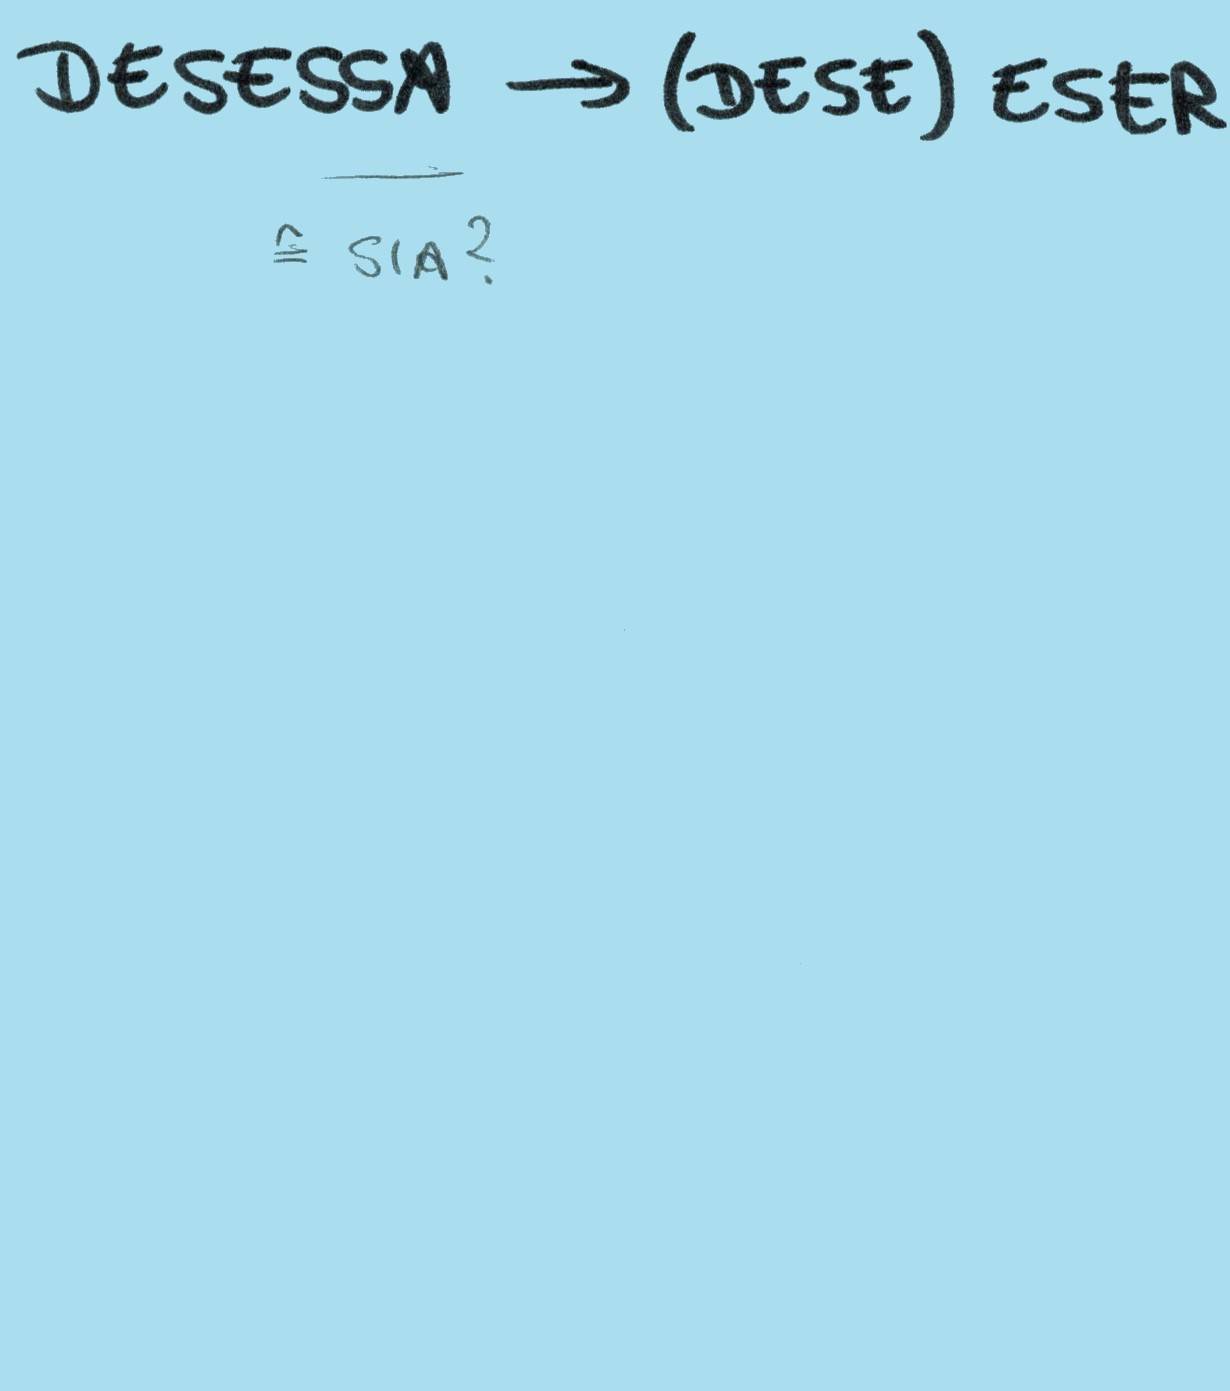 DESESSA → (DESE) ESER
≙ SIA?